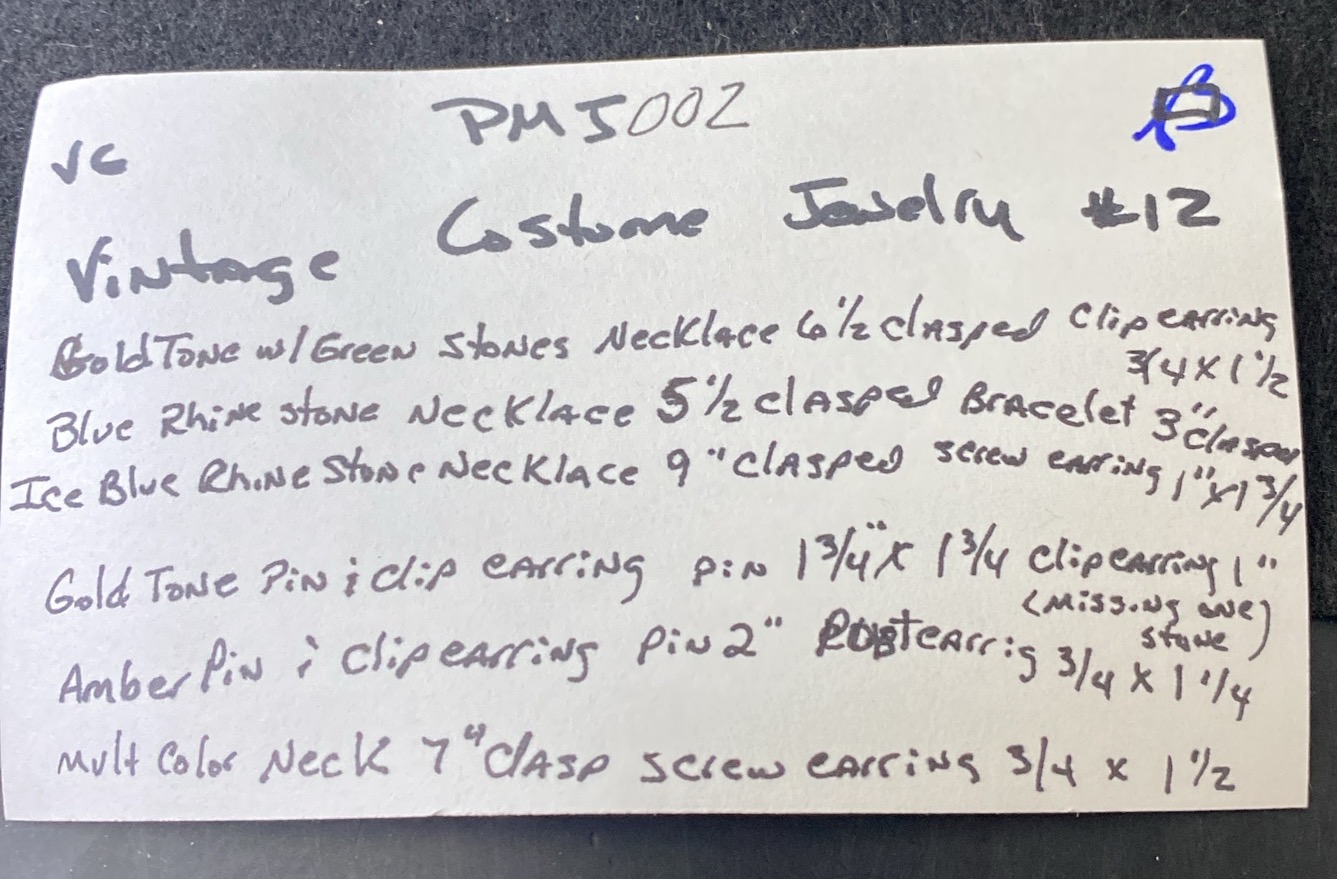 PMJ002
VC
Vintage Costume Jewelry #12
Gold Tone w/ Green Stones Necklace 6 1/2 clasped Clip earring
3/4 x 1 1/2
Blue Rhine stone Necklace 5 1/2 clasped Bracelet 3" clasped
Ice Blue Rhine Stone Necklace 9" clasped screw earring 1" x 1 3/4
Gold Tone Pin & Clip earring pin 1 3/4" x 1 3/4 clip earring 1"
(Missing one
stone)
Amber Pin & Clip earring Pin 2" Post earrig 3/4 x 1 1/4
Mult Color Neck 7" clasp screw earring 3/4 x 1 1/2